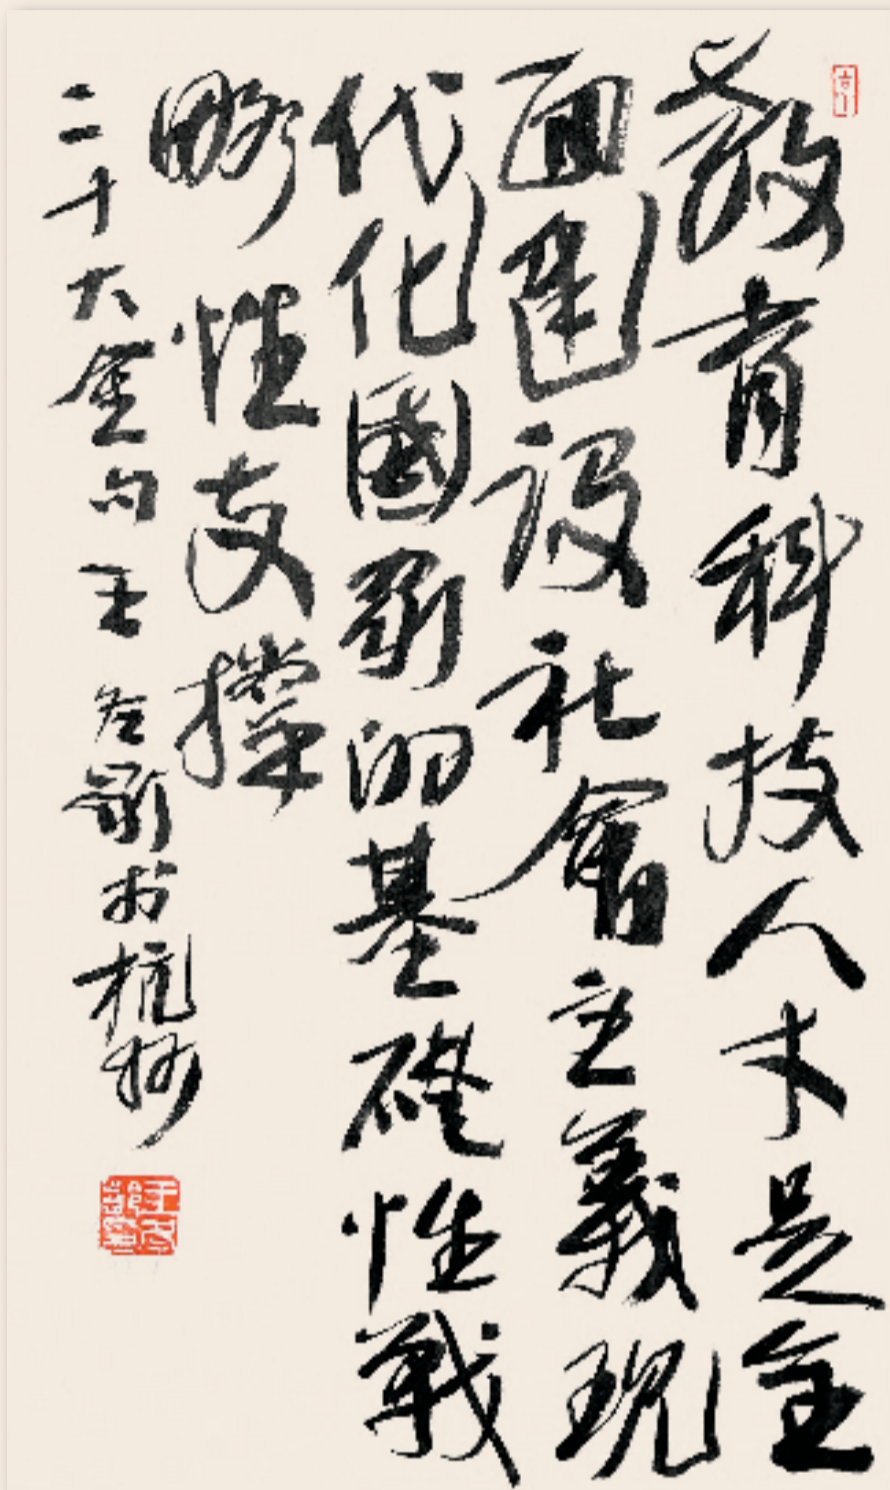 教育科技人才是全
面建設社會主義現
代化國家的基礎性戰
略性支撐
二十大金句王冬齡於杭州